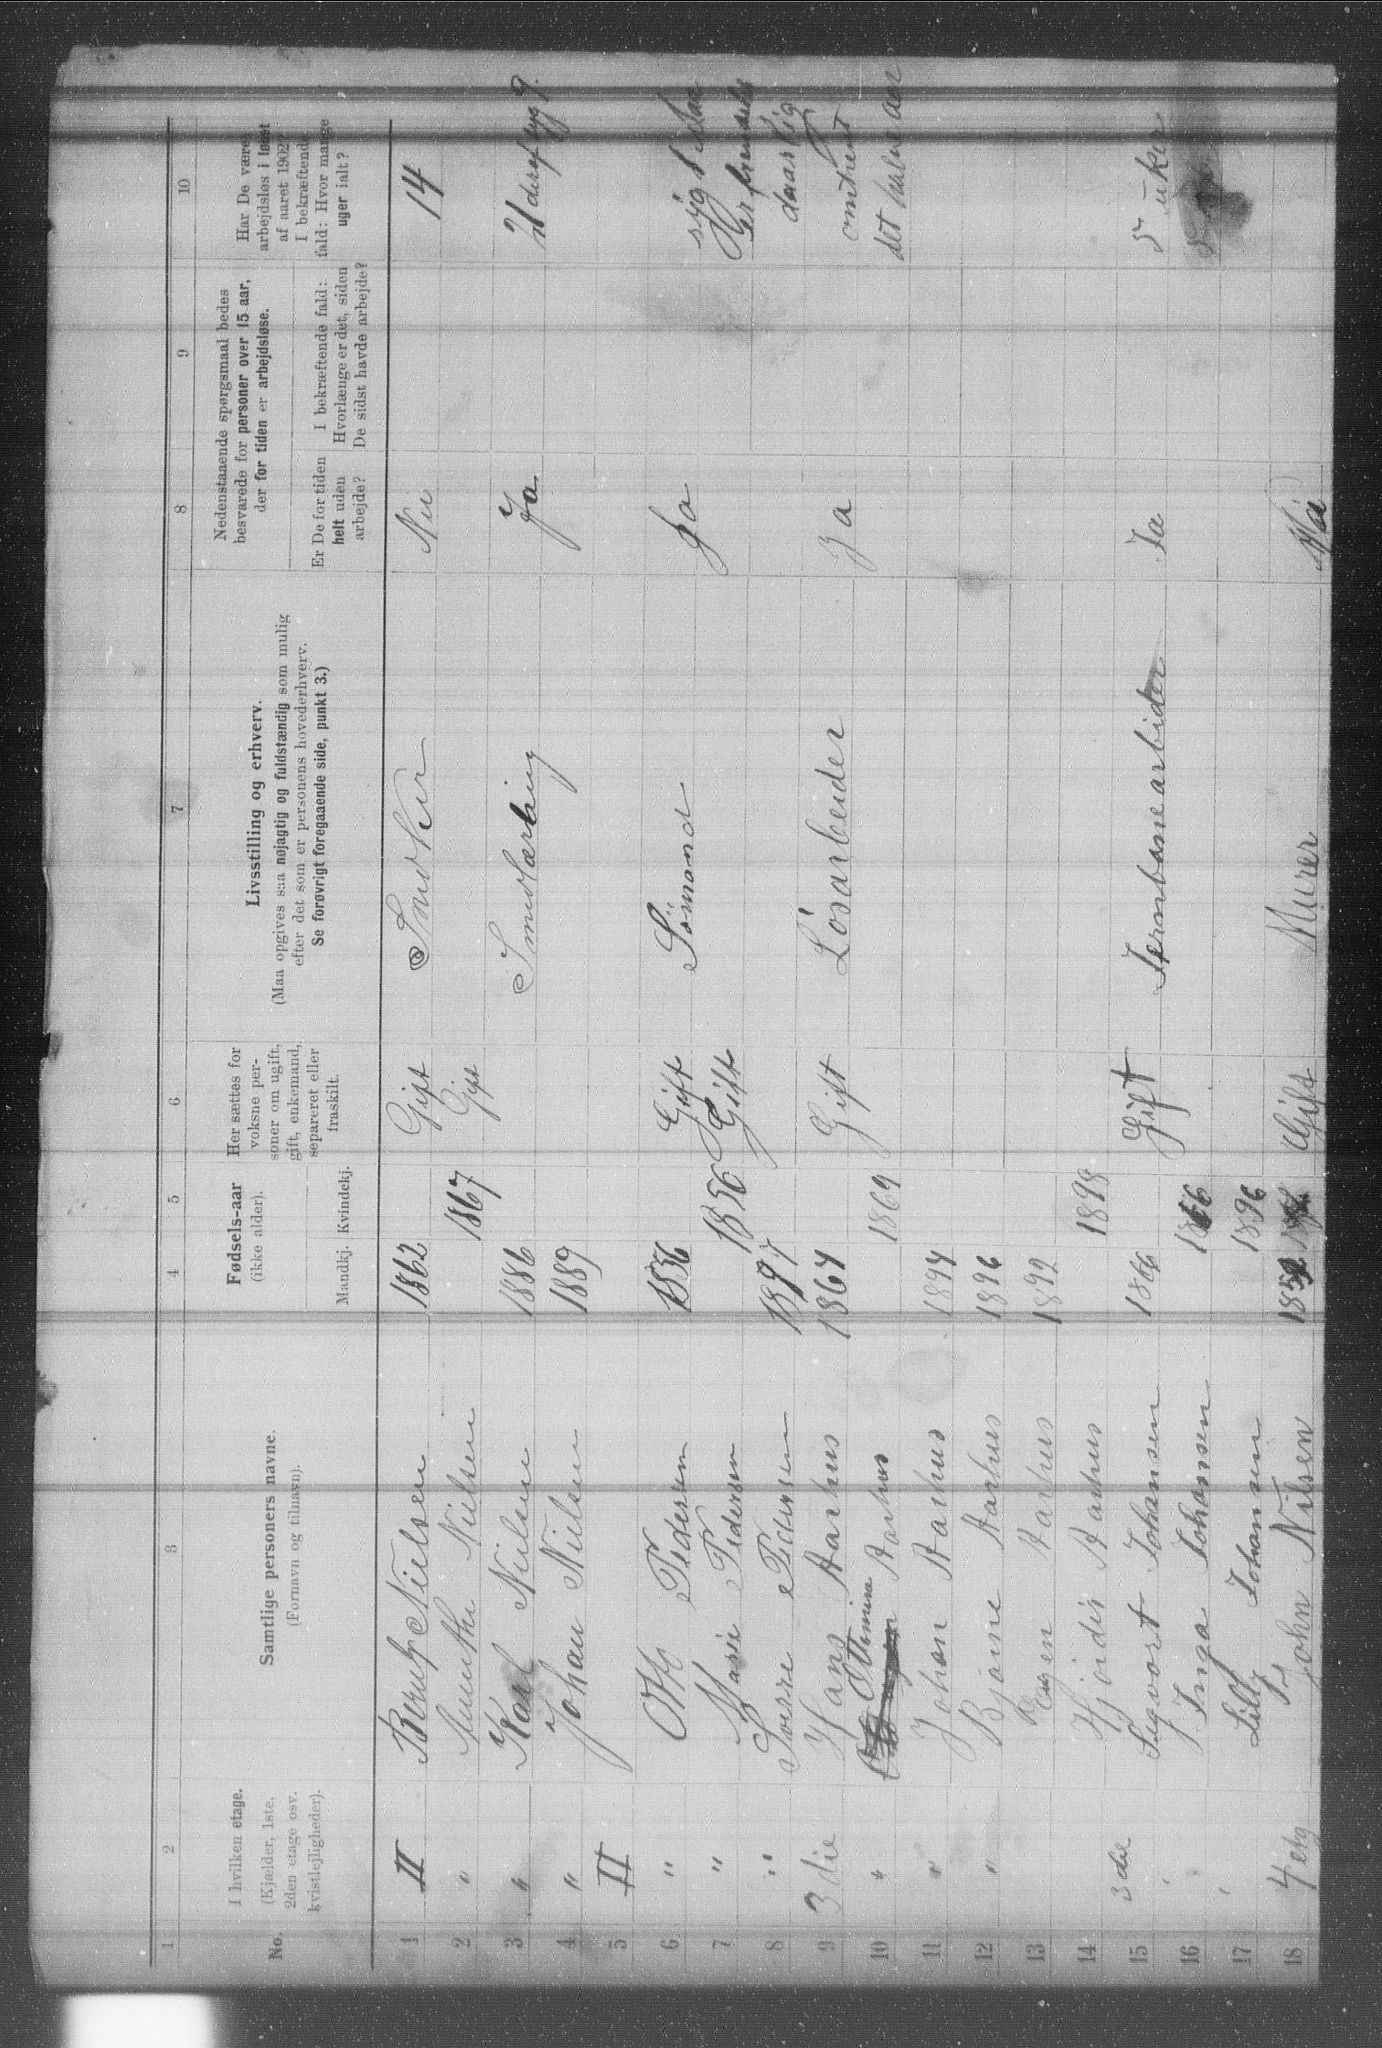 1 2 3 4 5 6 7 8 9 10
No.
I hvilken etage.
(Kjælder, 1ste,
2den etage osv.
kvistlejligheder).
Samtlige personers navne.
(Fornavn og tilnavn).
Fødsels-aar
(ikke alder).
Mandkj. Kvindekj.
Her sættes for
voksne per-
soner om ugift,
gift, enkemand,
separeret eller
fraskilt.
Livsstilling og erhverv.
(Maa opgives saa nøjagtig og fuldstændig som mulig
efter det som er personens hovederhverv.
Se forøvrigt foregaaende side, punkt 3.)
Nedenstaaende spørgsmaal bedes
besvarede for personer over 15 aar,
der for tiden er arbejdsløse.
Er De for tiden
helt uden
arbejde?
I bekræftende fald:
Hvorlænge er det, siden
De sidst havde arbejde?
Har De været
arbejdsløs i løbet
af aaret 1902?
I bekræftende
fald: Hvor mange
uger ialt?
1 II Nielsen 1862 Gift Snedker Nei 14
2 " Nielsen 1867 Gift
3 " Karl Nielsen 1886 Ja
4 " Johan Nielsen 1889
5 II
6 " Otto Pedersen 1856 Gift Sömand Ja
7 " Marie Pedersen 1856 Gift
8 " Pedersen 1897 daarlig
9 3die Hans Aarhus 1864 Gift Lösarbeider Ja omtrent
10 " Ottomine Aarhus 1869 det halve aar
11 " Johan Aarhus 1894
12 " Bjarne Aarhus 1896
13 Eugen Aarhus 1892
14 Hjördis Aarhus 1898
15 3die Sigvart Johansen 1866 Gift Jernbanearbider Ja 5 uker
16 Inga Johansen
17 Lilly Johansen 1896
18 4 etg John Nilsen Gift Murer